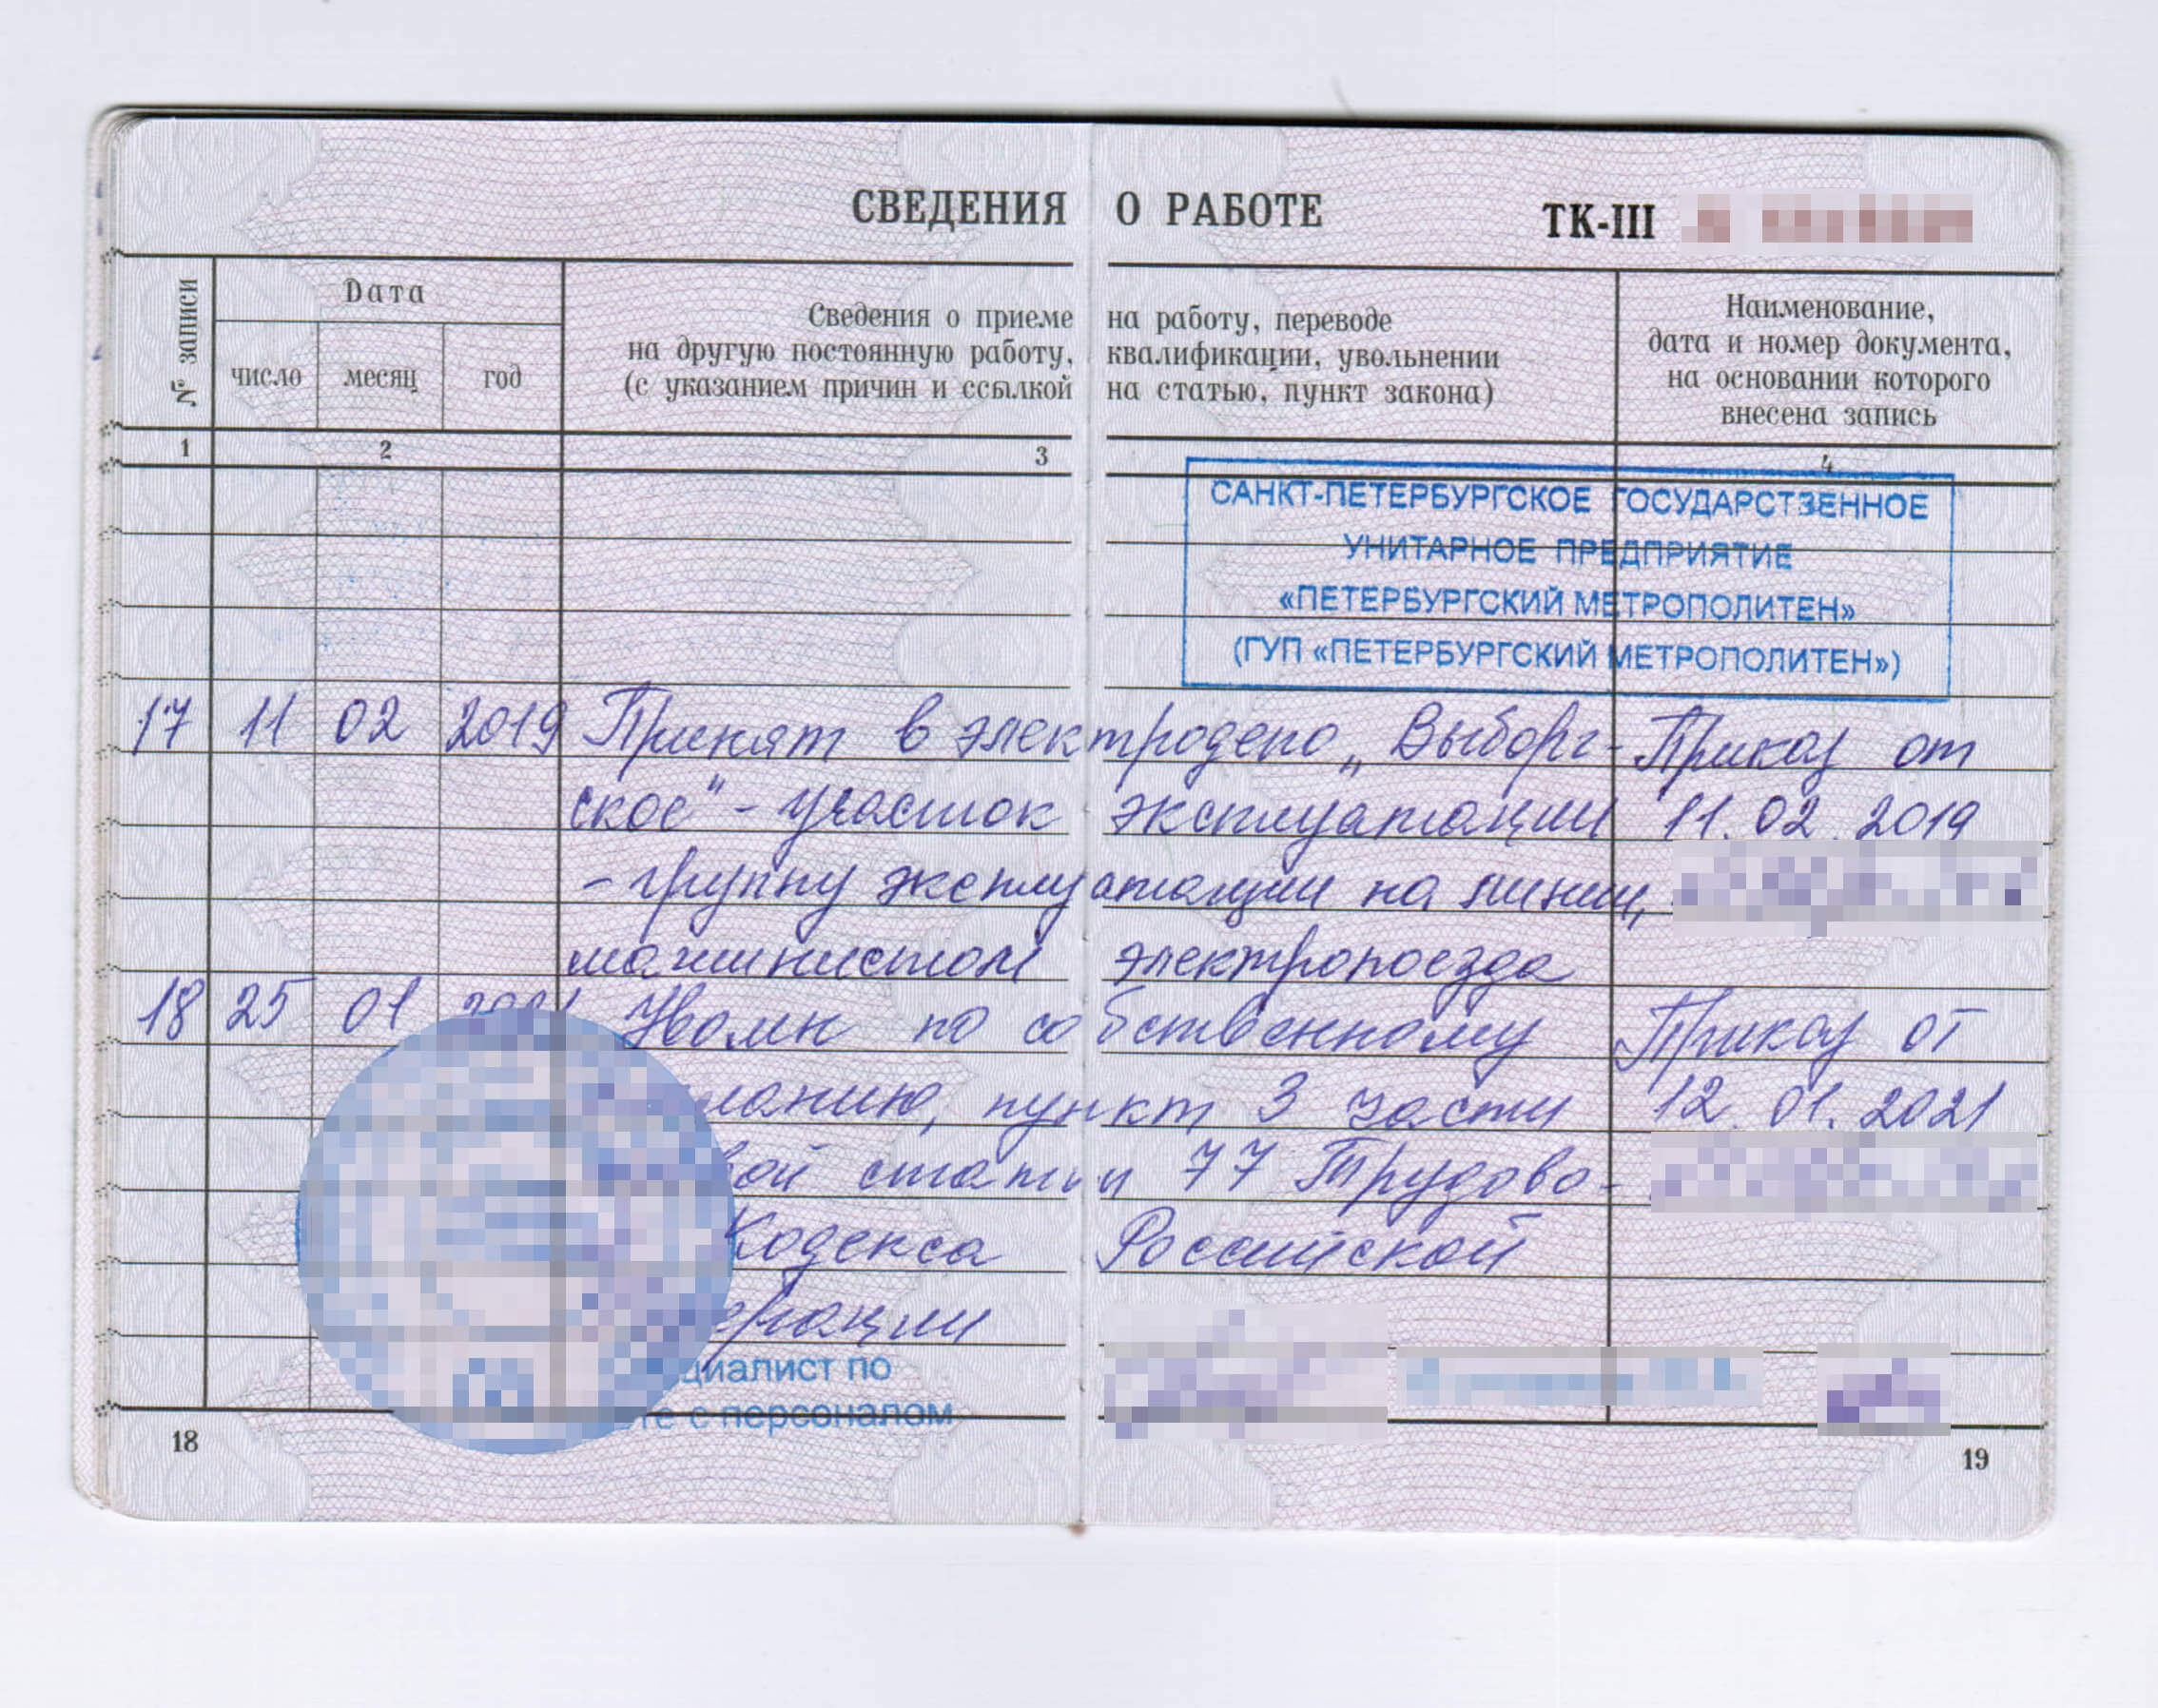 СВЕДЕНИЯ О РАБОТЕ ТК-III
№ записи
Дата
число месяц год
Сведения о приеме на работу, переводе
на другую постоянную работу, квалификации, увольнении
(с указанием причин и ссылкой на статью, пункт закона)
Наименование,
дата и номер документа,
на основании которого
внесена запись
1 2 3 4
САНКТ-ПЕТЕРБУРГСКОЕ ГОСУДАРСТВЕННОЕ
УНИТАРНОЕ ПРЕДПРИЯТИЕ
«ПЕТЕРБУРГСКИЙ МЕТРОПОЛИТЕН»
(ГУП «ПЕТЕРБУРГСКИЙ МЕТРОПОЛИТЕН»)
17 11 02 2019 Принят в электродепо „Выборг- Приказ от
ское" - участок эксплуатации 11.02.2019
- группу эксплуатации на линии,
машинистом электропоезда
18 25 01 2021 Уволен по собственному Приказ от
ланию, пункт 3 части 12.01.2021
вой статьи 77 Трудово-
Кодекса Российской
ерации
циалист по
те с персоналом
18 19